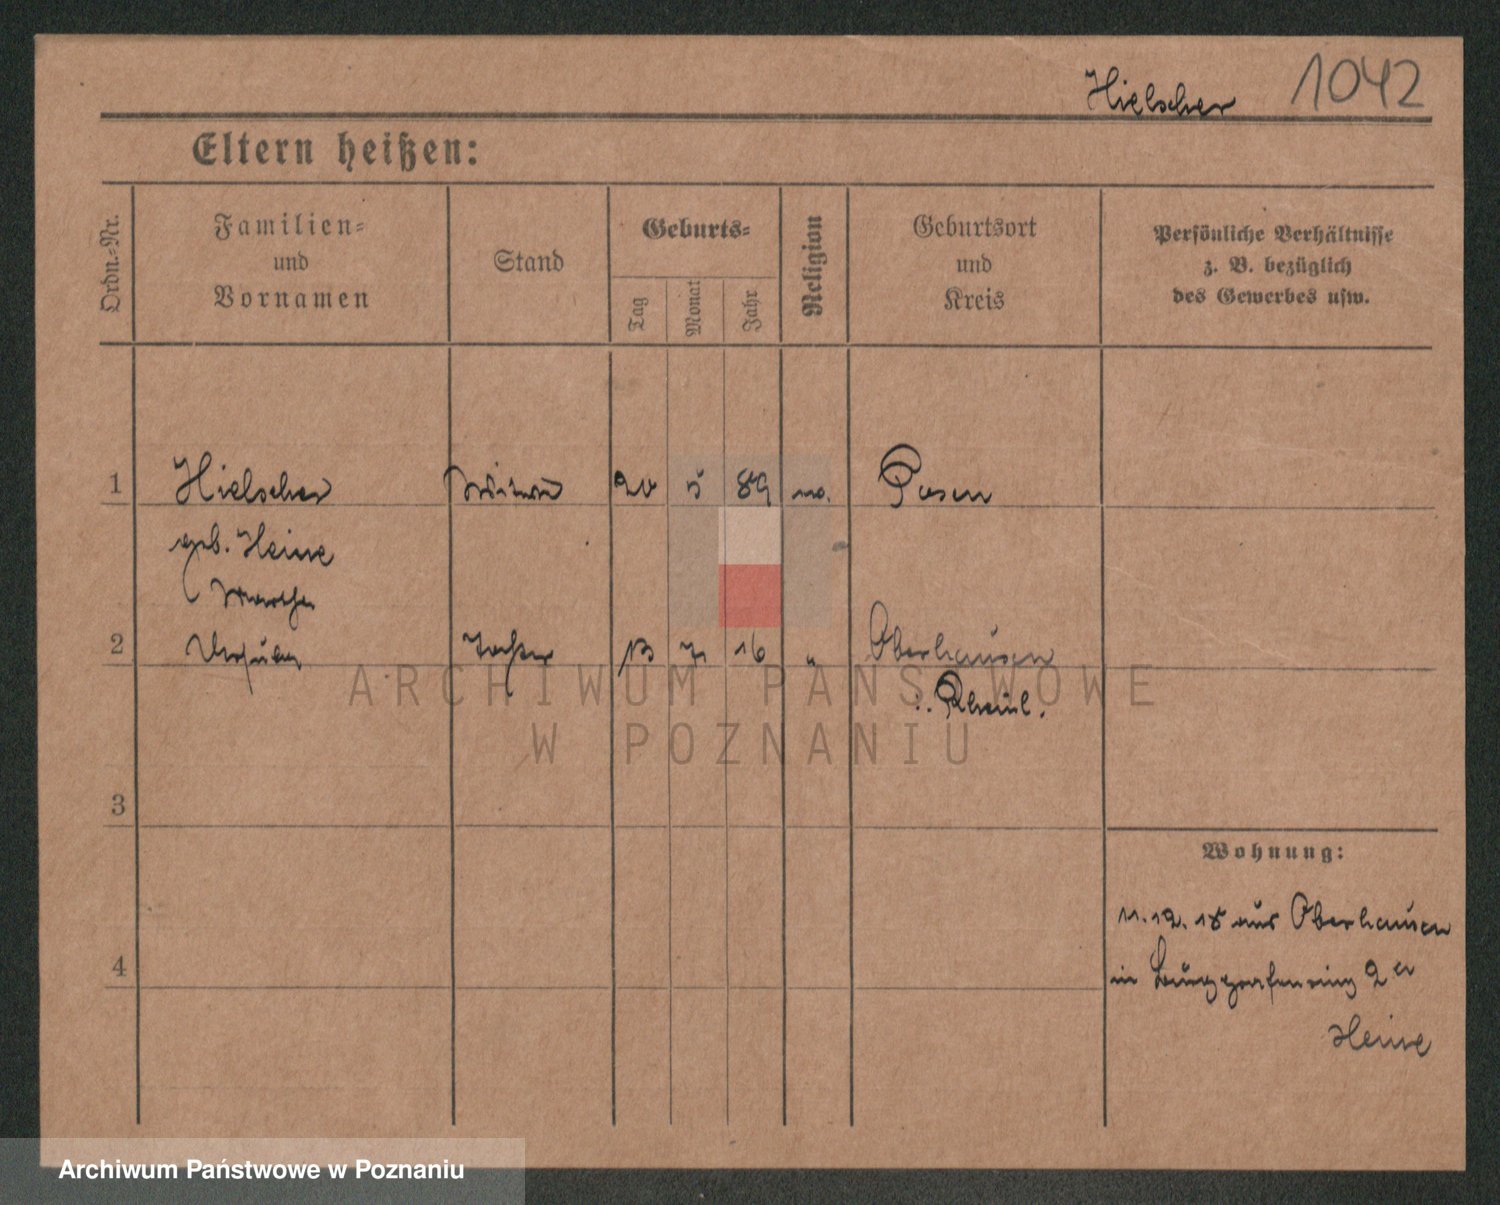 Hielscher 1042
Eltern heißen:
Ordn.-Nr.
Familien-
und
Vornamen
Stand
Geburts-
Tag
Monat
Jahr
Religion
Geburtsort
und
Kreis
Persönliche Verhältnisse
z. B. bezüglich
des Gewerbes usw.
1 Hielscher 20 5 89 Posen
geb. Heine
Martha
2 Ursula Tochter 13 7 16 " Oberhausen
Rheinl.
ARCHIWUM PAŃSTWOWE
W POZNANIU
3
Wohnung:
11.12.18 aus Oberhausen
4
in Burggrafenring 2a
Heine
Archiwum Państwowe w Poznaniu